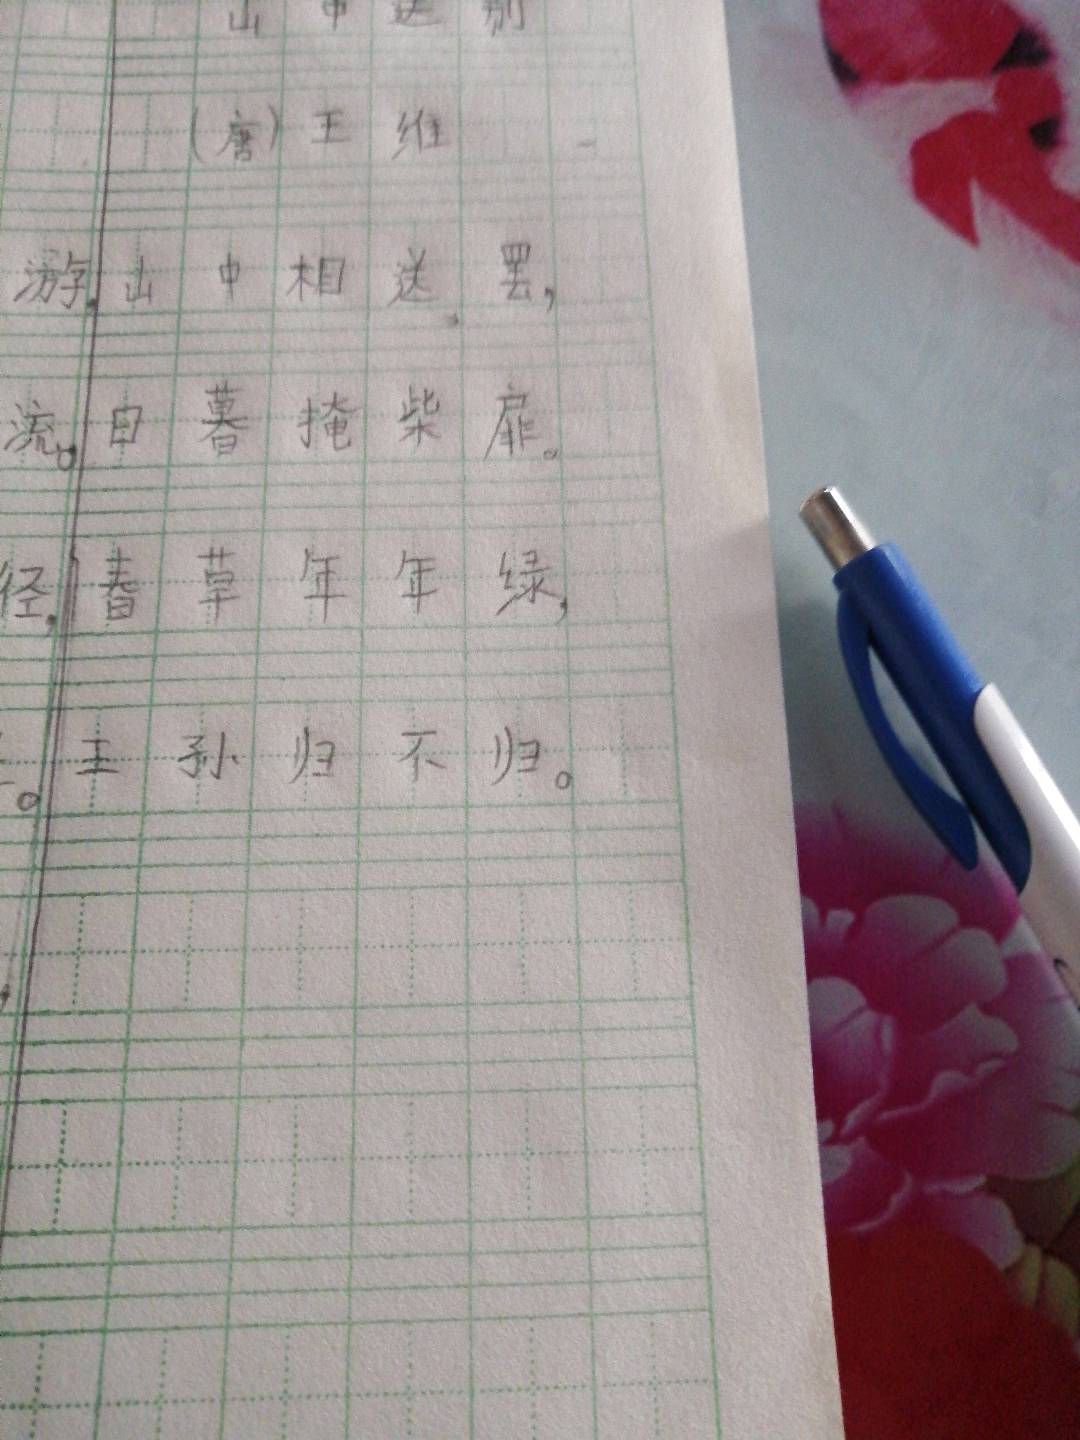 山中送别
（唐）王维
游，山中相送罢，
流。日暮掩柴扉。
径，春草年年绿，
。王孙归不归。